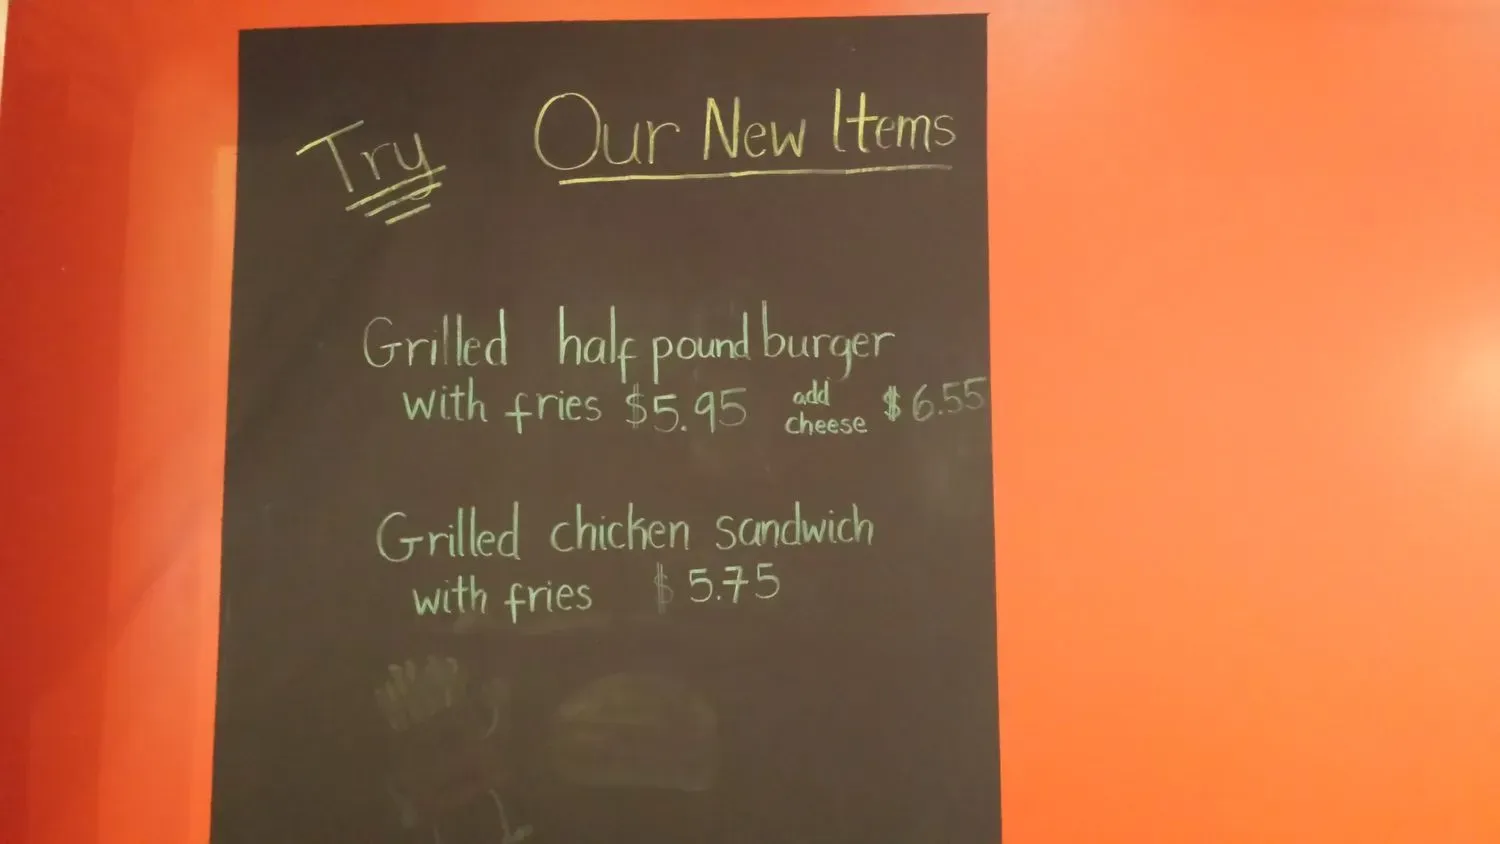 Try Our New Items
Grilled half pound burger
with fries $5.95 add cheese $6.55
Grilled chicken sandwich
with fries $5.75